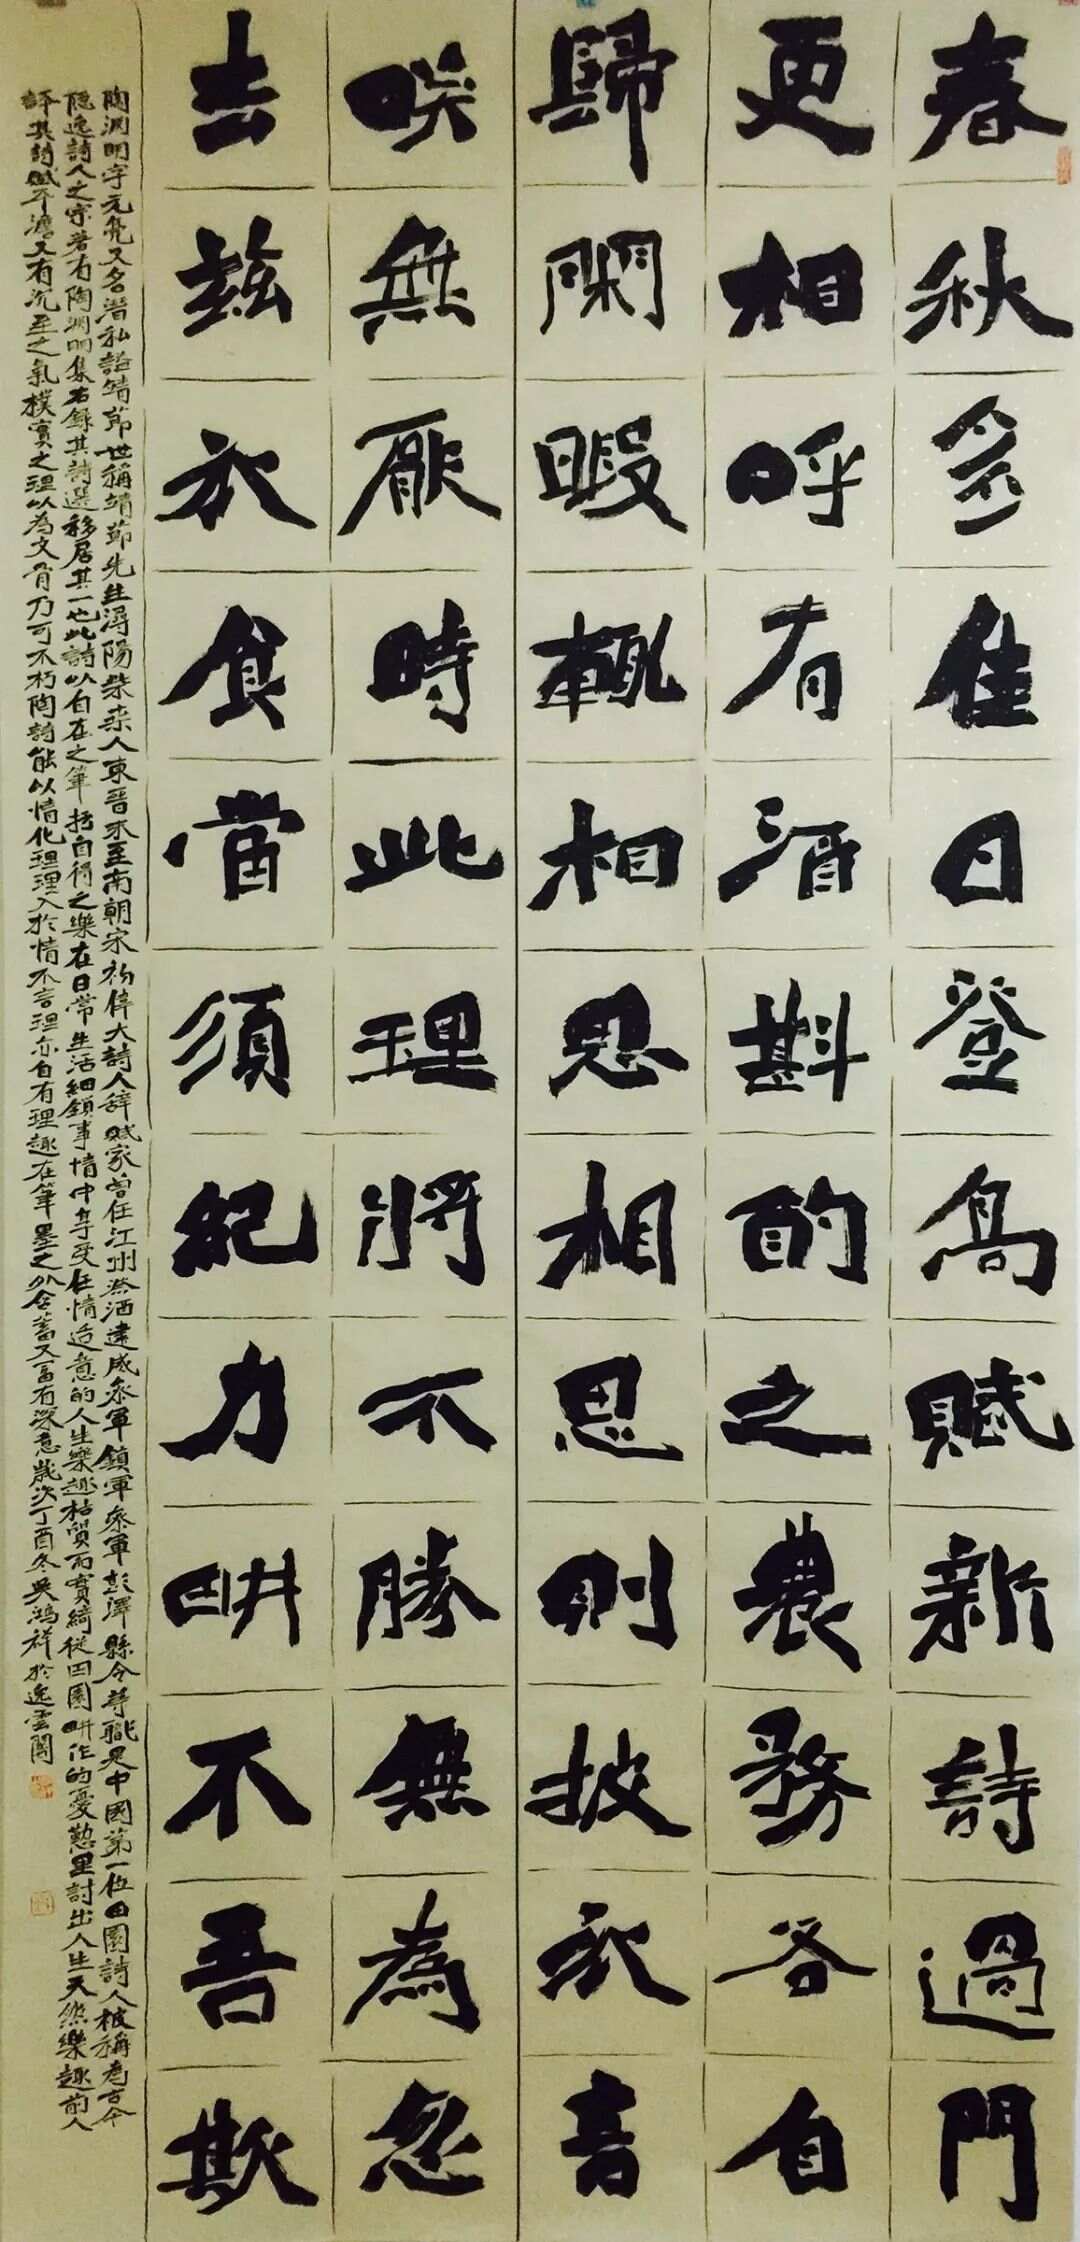 春秋多佳日登高賦新詩過門
更相呼有酒斟酌之農務各自
歸閑暇輒相思相思則披衣言
咲無厭時此理將不勝無為忽
去茲衣食當須紀力畊不吾欺
陶淵明字元亮又名潛私謚靖節世稱靖節先生潯陽柴桑人東晉末至南朝宋初偉大詩人辭賦家曾任江州祭酒建威參軍鎮軍參軍彭澤縣令等職是中國第一位田園詩人被稱為古今
隱逸詩人之宗著有陶淵明集右錄其詩選移居其一也此詩以自在之筆抒自得之樂在日常生活細鎖事情中享受任情适意的人生樂趣枯質而實綺從田園畊作的憂懃里討出人生天然樂趣前人
評其詩賦平澹又有沉至之氣樸實之理以為文骨乃可不朽陶詩能以情化理理入於情不言理亦自有理趣在筆墨之外含蓄又富有深意歲次丁酉冬吳鴻祥於逸雲閣